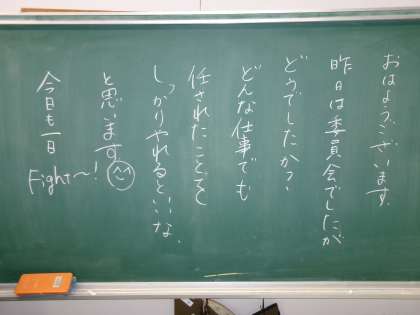 おはようございます。
昨日は委員会でしたが
どうでしたか？
どんな仕事でも
任されたことをしっ
しっかりやれるといいな、
と思います
今日も一日
Fight〜!